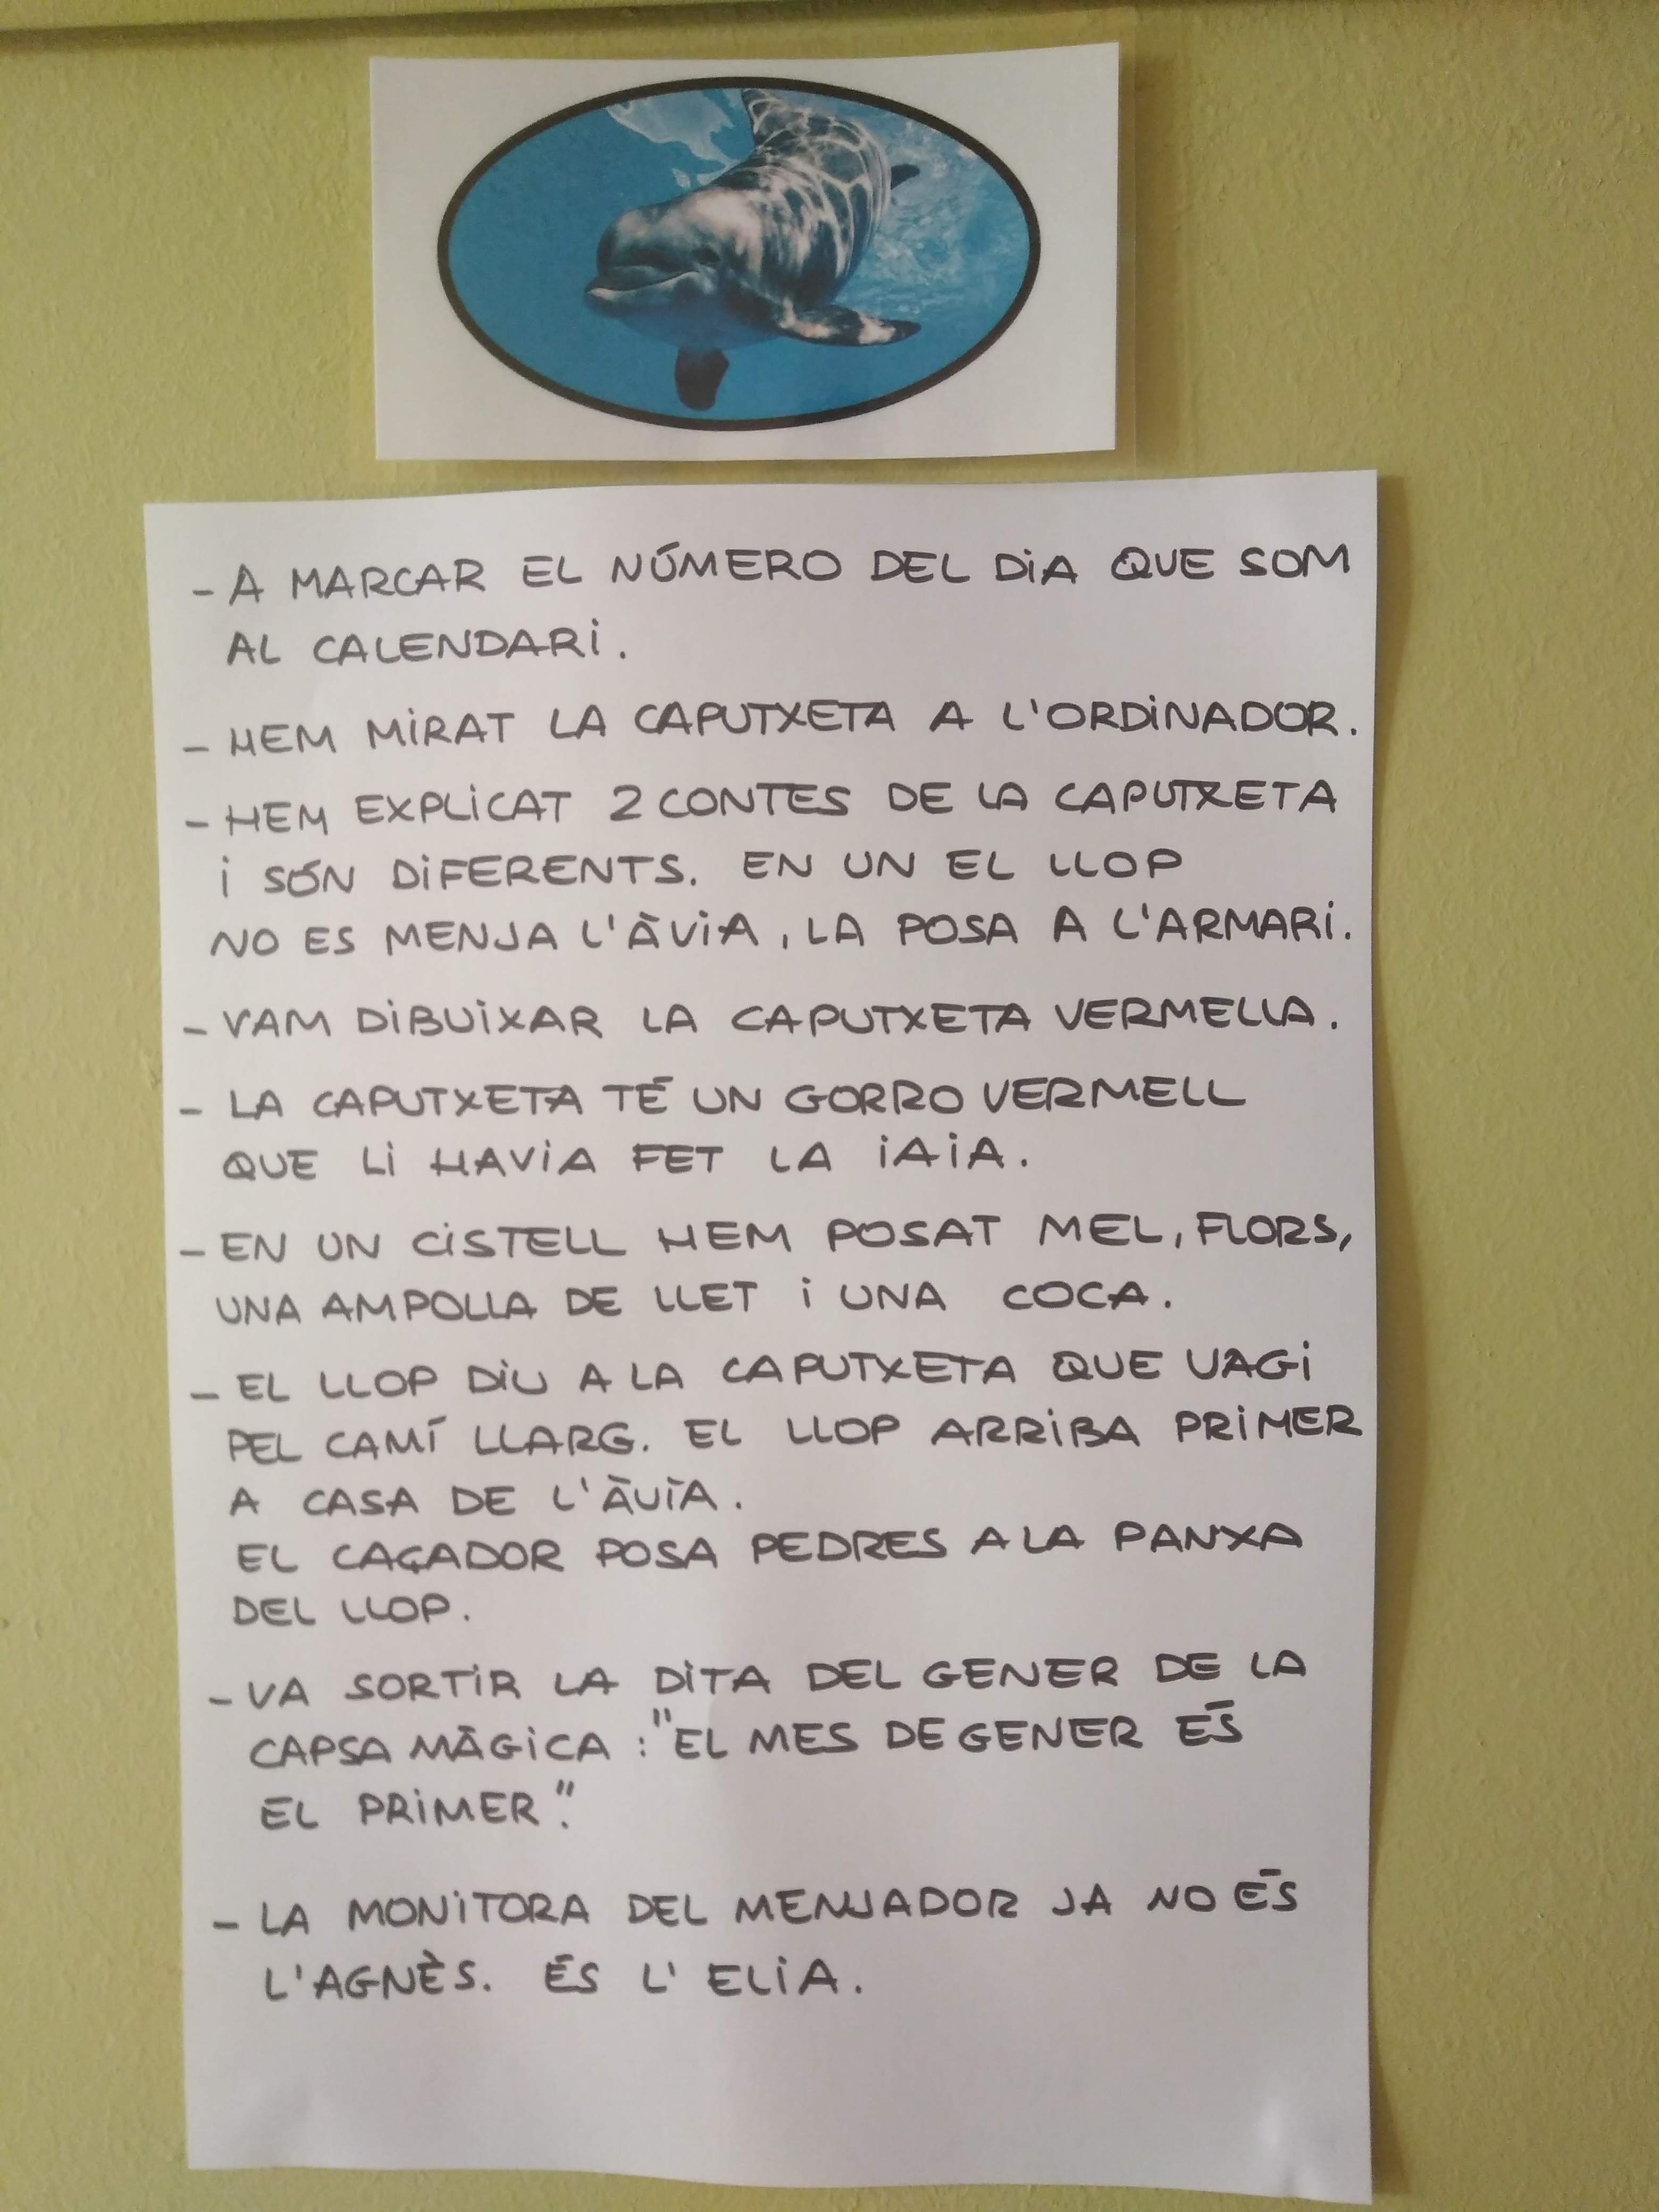 - A MARCAR EL NÚMERO DEL DiA QUE SOM
AL CALENDARi.
- HEM MiRAT LA CAPUTXETA A L'ORDiNADOR.
- HEM EXPLiCAT 2 CONTES DE LA CAPUTXETA
i SÓN DiFERENTS. EN UN EL LLOP
NO ES MENJA L'ÀViA, LA POSA A L'ARMARi.
- VAM DiBUiXAR LA CAPUTXETA VERMELLA.
- LA CAPUTXETA TÉ UN GORRO VERMELL
QUE Li HAViA FET LA iAiA.
- EN UN CiSTELL HEM POSAT MEL, FLORS,
UNA AMPOLLA DE LLET i UNA COCA.
- EL LLOP DiU A LA CAPUTXETA QUE VAGi
PEL CAMÍ LLARG. EL LLOP ARRiBA PRiMER
A CASA DE L'ÀViA.
EL CAÇADOR POSA PEDRES A LA PANXA
DEL LLOP.
- VA SORTiR LA DiTA DEL GENER DE LA
CAPSA MÀGiCA : "EL MES DE GENER ÉS
EL PRiMER".
- LA MONiTORA DEL MENJADOR JA NO ÉS
L'AGNÈS. ÉS L' ELiA.